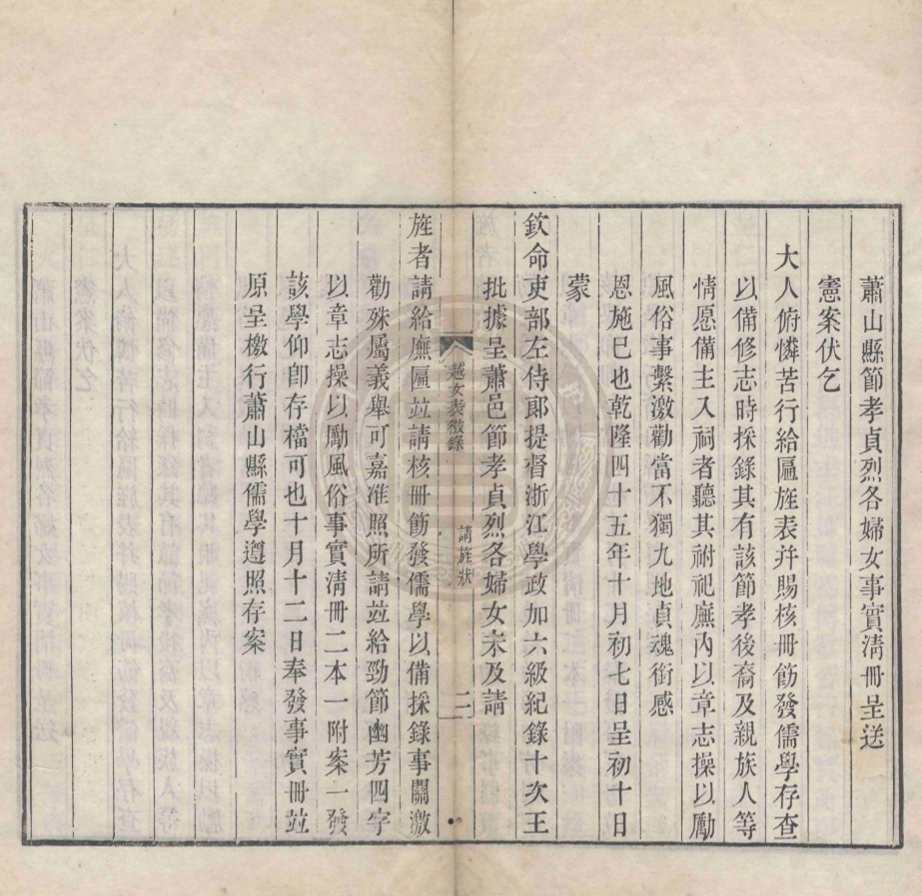 蕭山縣節孝貞烈各婦女事實清冊呈送
憲案伏乞
大人俯憐苦行給匾旌表幷賜核冊飭發儒學存查
以備修志時採錄其有該節孝後裔及親族人等
情愿備主入祠者聽其祔祀廡內以章志操以勵
風俗事繫激勸當不獨九地貞魂銜感
恩施巳也乾隆四十五年十月初七日呈初十日
蒙
欽命吏部左侍郎提督浙江學政加六級紀錄十次王
批據呈蕭邑節孝貞烈各婦女未及請
越女表微錄 請旌狀 二
旌者請給廡匾竝請核冊飭發儒學以備採錄事關激
勸殊屬義舉可嘉准照所請竝給勁節幽芳四字
以章志操以勵風俗事實清冊二本一附案一發
該學仰卽存檔可也十月十二日奉發事實冊竝
原呈檄行蕭山縣儒學遵照存案